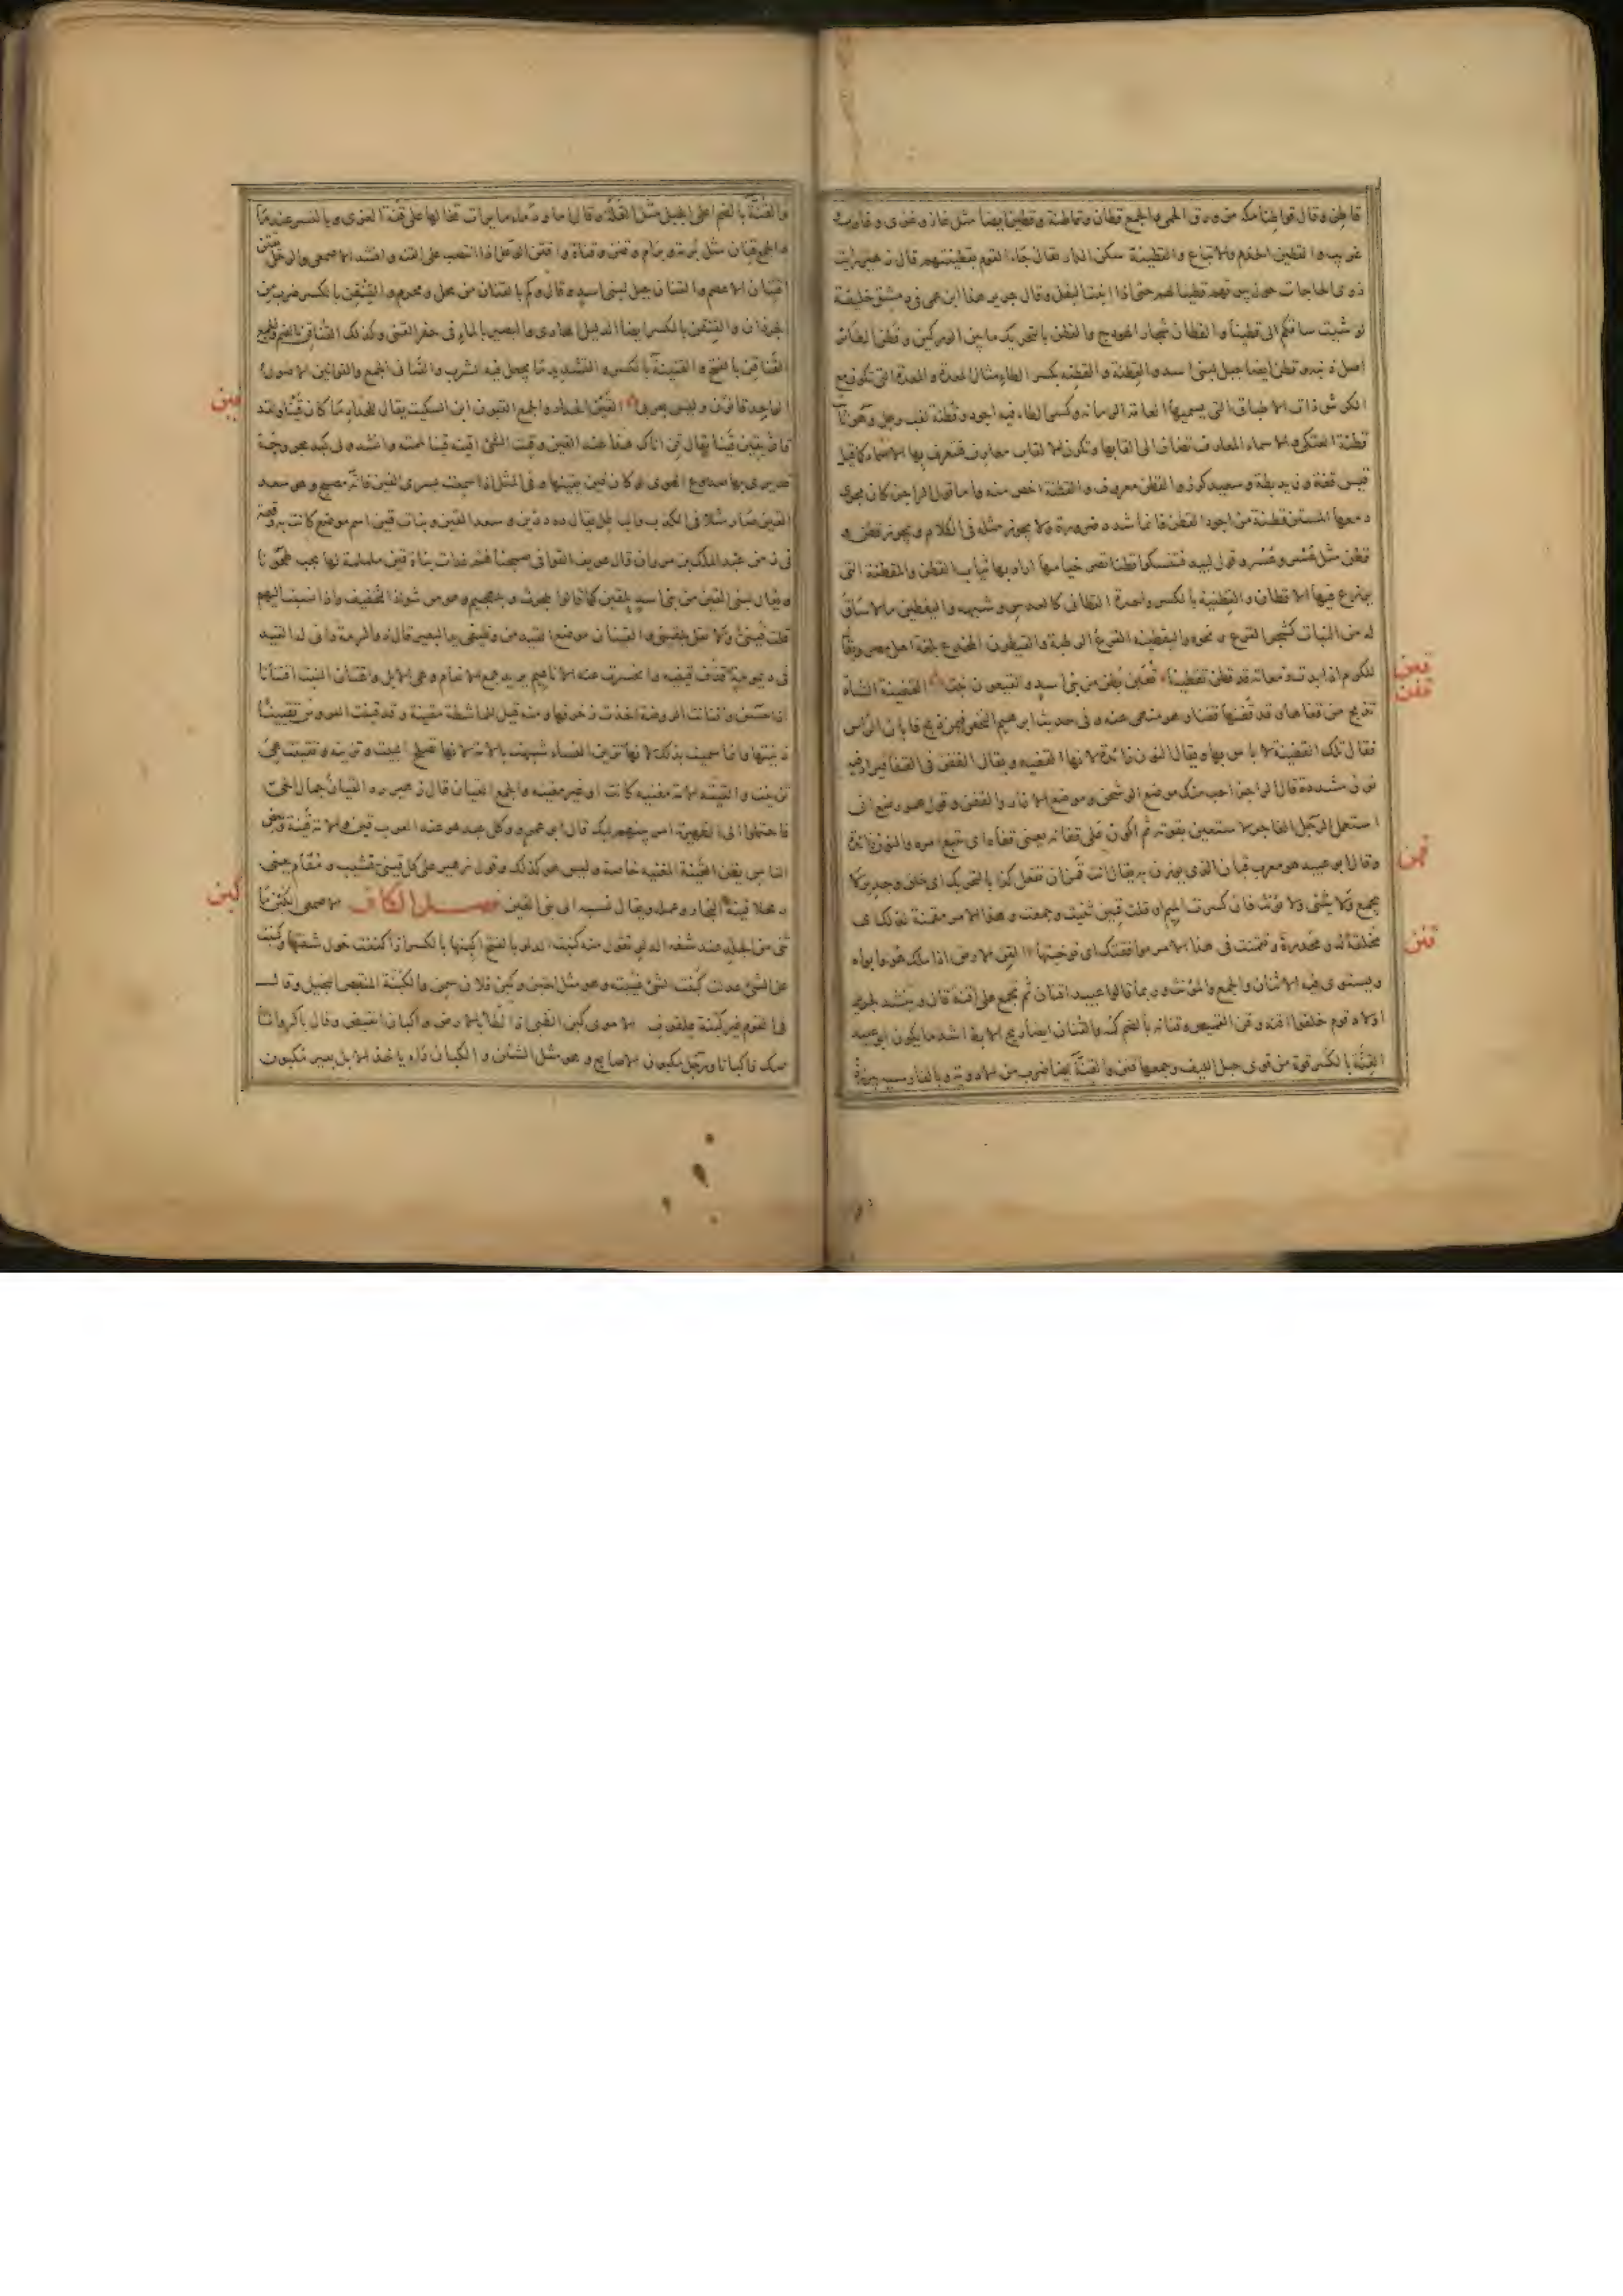 قاطن وقال قواطنا مكة من ورق الحمى والجمع قطان وقاطنة وقطين ايضا مثل غاز وغزى وعازب
غريب والقطين الخدم والاتباع والقطينة سكن الدار يقال جاء القوم بقطينتهم قال زهير رايت
ذوى الحاجات حول بيوتهم قطينا لهم حتى اذا انبت البقل وقال جرير هذا ابن عمى فى دمشق خليفة
لو شيت ساقكم الى قطينا والقطان شجار الهودج والقطن بالتحريك ما بين الوركين وقطن الطائر
اصل ذنبه وقطن ايضا جبل لبنى اسد والقطنة والقطنه بكسر الطاء مثال المعدة والمعدة التى تكون مع
الكرش ذات الاطباق التى يسميها العامة الرمانه وكسر الطاء فيه اجود وقطنة لقب رجل وهو ثابت
قطنة العتكى والاسماء المعارف تضاف الى القابها وتكون الالقاب معارف فتتعرف بها الاسماء كما قيل
قيس قفة وزيد بطة وسعيد كرز والقطن معروف والقطنة اخص منه واما قول الراجز كان مجرى
دمعها المستن قطنة من اجود القطن فانما شدده ضرورة ولا يجوز مثله فى الكلام ويجوز قطن و
قطن مثل عسر وعسر وقول لبيد فتكنسوا قطنا تصر خيامها اراد بها ثياب القطن والمقطنة التى
يزرع فيها الاقطان والقطنية بالكسر واحدة القطانى كالعدس وشبهه واليقطين ما لا ساق
له من النبات كشجر القرع ونحوه واليقطينه القرع الرطبة والقيطون المخدع بلغة اهل مصر ويقال
للكرم اذا بدت زمعاته قد قطن تقطينا قعين بطن من بنى اسد والقيعون نبت القفينة الشاة
تذبح من قفاها وقد قفنها قفنا وهو منهى عنه وفى حديث ابرهيم النخعى فيمن ذبح فابان الراس
فقال تلك القفينة لا باس بها ويقال النون زائدة لانها القفيه ويقال القفن فى القفا فيزاد فيه
نون مشددة قال الراجز احب منك موضع الوشحن وموضع الازار والقفن وقول عمر رضى انى
استعمل الرجل الفاجر لاستعين بقوته ثم اكون على قفانه يعنى قفاه اى تتبع امره والنون زائدة
وقال ابو عبيد هو معرب قبان الذى يوزن به يقال انت قمن ان تفعل كذا بالتحريك اى خليق وجدير لا
يجمع ولا يثنى ولا يونث فان كسرت الميم او قلت قمين ثنيت وجمعت وهذا الامر مقمنة لذلك اى
مخلقة له ومجدرة وتقمنت فى هذا الامر موافقتك اى توخيتها القن العبد اذا ملك هو وابواه
ويستوى فيه الاثنان والجمع والمونث وربما قالوا عبيد اقنان ثم يجمع على اقنة قال وينشد لجرير
اولاد قوم خلقوا اقنه وقن القميص وقنانه بالضم كمه والقنان ايضا ريح الابط اشد ما يكون ابو عبيد
القنة بالكسر قوة من قوى حبل الليف وجمعها قنن والقنة ايضا ضرب من الادوية وبالفارسيه بيرزد
قعن
قفن
قمن
قنن
والقنة بالضم اعلى الجبل مثل القلة وقال اما ودماء مايرات تخالها على قنة العزى وبالنسر عندما
والجمع قنان مثل برمة وبرام وقنن وقنات واقتن الوعل اذا انتصب على القنه وانشد الاصمعى والرحل يقتن
اقتنان الاعصم والقنان جبل لبنى اسد وقال وكم بالقنان من محل ومحرم والقنقن بالكسر ضرب من
الجرذان والقنقن بالكسر ايضا الدليل الهادى والبصير بالماء فى حفر القنى وكذلك القناقن بالضم والجمع
القناقن بالفتح والقنينة بالكسر والتشديد ما يجعل فيه الشراب والقنانى الجمع والقوانين الاصول
الواحد قانون وليس بعربى القين الحداد والجمع القيون ابن السكيت يقال للحداد ما كان قينا ولقد
قان يقين قينا يقال قن اناك هذا عند القين وقنت الشئ اقينه قينا لممته وانشد ولى كبد مجروحة
قد بدى بها صدوع الهوى لو كان قين يقينها وفى المثل اذا سمعت بسرى القين فانه مصبح وهو سعد
القين صار مثلا فى الكذب والباطل يقال ده درين وسعد القين وبنات قين اسم موضع كانت به وقعة
فى زمن عبد الملك بن مروان قال عويف القوافى صبحناهم غداة بنات قين ململمة لها لجب طحونا
ويقال لبنى القين من بنى اسد بلقين كما قالوا بلحرث وبلهجيم وهو من شواذ التخفيف واذا نسبت اليهم
قلت قينى ولا تقل بلقينى والقينان موضع القيد من وظيفى يد البعير قال ذو الرمة دانى له القيد
فى ديمومة قذف قينيه وانحسرت عنه الاناعيم يريد جمع الانعام وهى الابل واقتان النبت اقتيانا
اذا حسن واقتانت الروضة اخذت زخرفها ومنه قيل للماشطة مقينة وقد قينت العروس تقيينا
زينتها وانما سميت بذلك لانها تزين النساء شبهت بالامة لانها تصلح البيت وتزينه وتقينت هى
تزينت والقينه الامة مغنيه كانت او غير مغنيه والجمع القيان قال زهير رد القيان جمال الحى
فاحتملوا الى الظهيرة امر بينهم لبك قال ابو عمرو وكل عبد هو عند العرب قين والامة قينة وبعض
الناس يظن القينة المغنيه خاصة وليس هو كذلك وقول زهير على كل قينى قشيب ومفام يعنى
رحلا قينه النجار وعمله ويقال نسبه الى بنى القين فصل الكاف الاصمعى الكبن ما
ثنى من الجلد عند شفه الدلو تقول منه كبنت الدلو بالفتح اكبنها بالكسر اذا كففت حول شفتها وكبنت
عن الشئ عدلت كبنت الشئ غيبته وهو مثل الخبن وكبن فلان سمن والكبنة المنقبض البخيل وقالـــ
فى القوم غير كبنة علفوف الاموى كبن الظبى اذا لطا بالارض واكبان انقبض وقال يا كروانا
صك فاكبانا ورجل مكبون الاصابع وهو مثل الششن والكبان داء ياخذ الابل بعير مكبون
قين
كبن